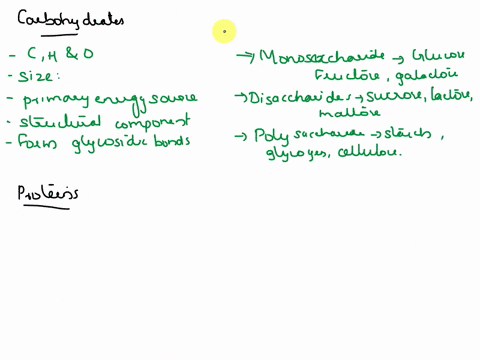 Carbohydrates
- C, H & O
- Size:
- primary energy source
- structural component
- Forms glycosidic bonds
→ Monosaccharide → Glucose
Fructose, galactose
→ Disaccharides → sucrose, lactose,
maltose
→ Polysaccharide → starch,
glycogen, cellulose.
Proteins